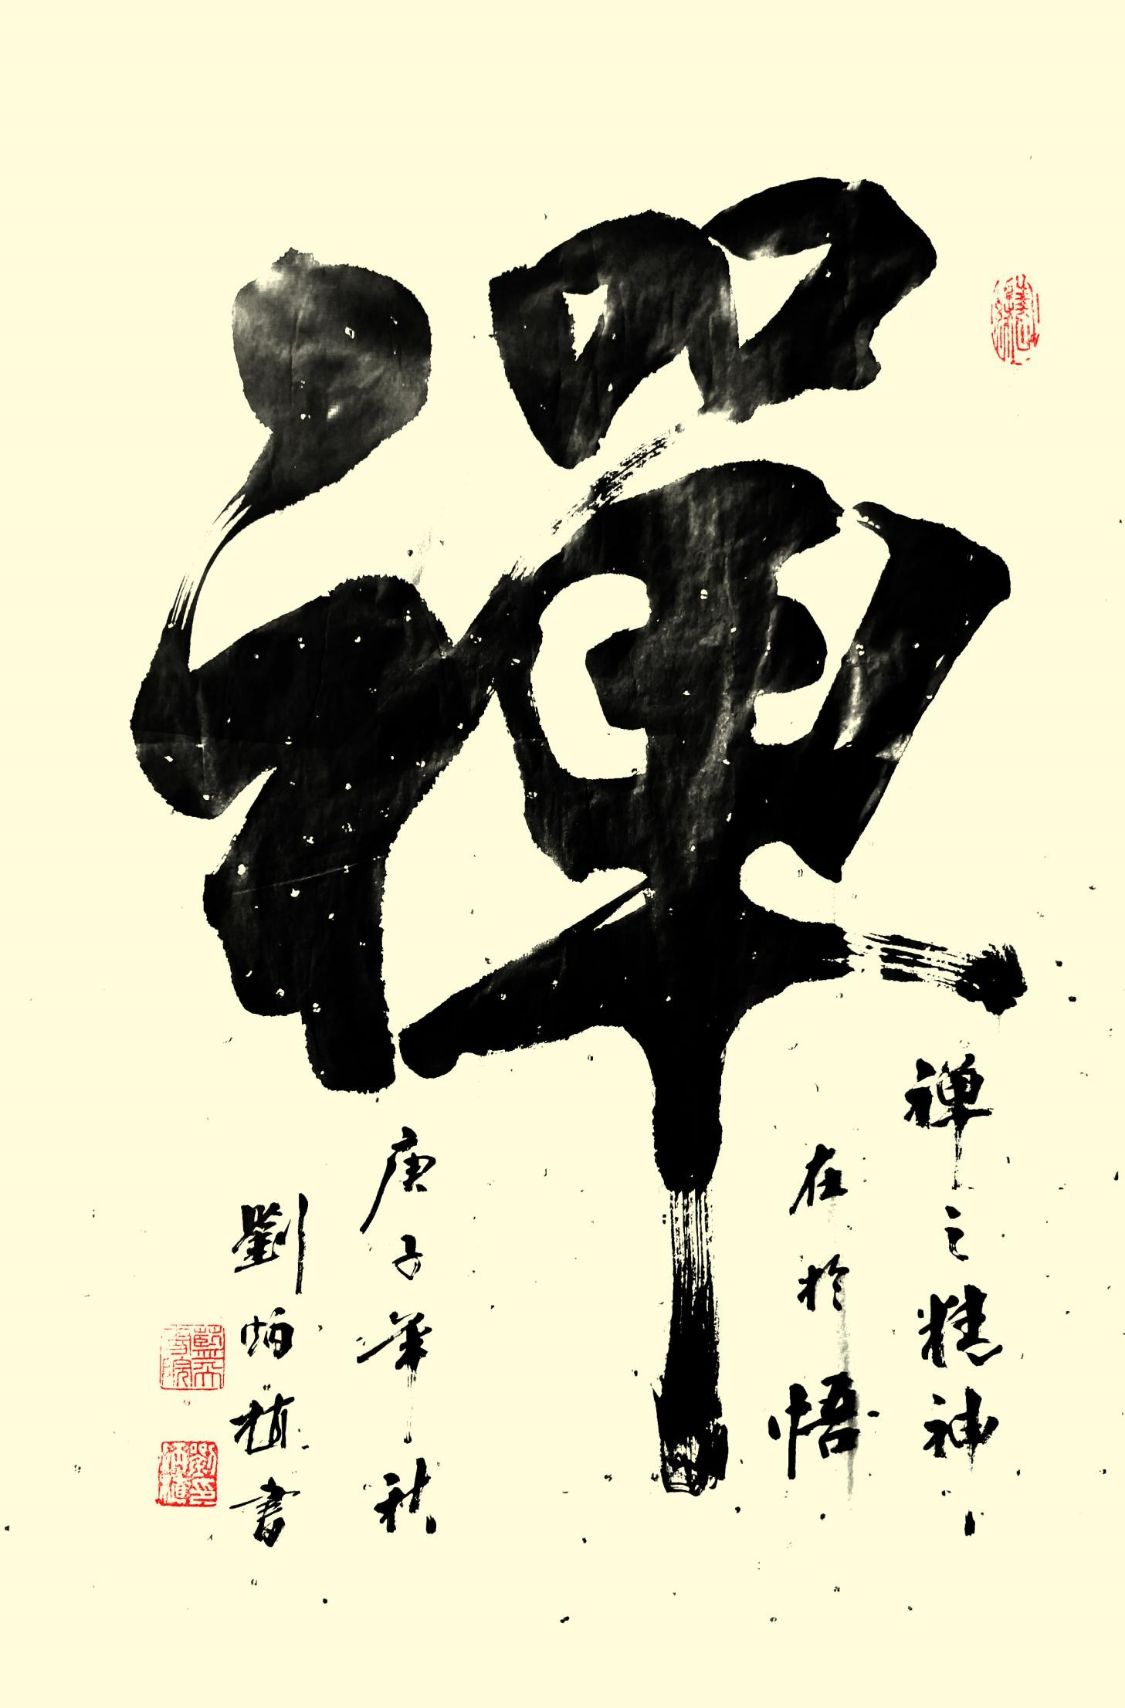 禪
禅之精神
在於悟
庚子年秋
劉炳植書